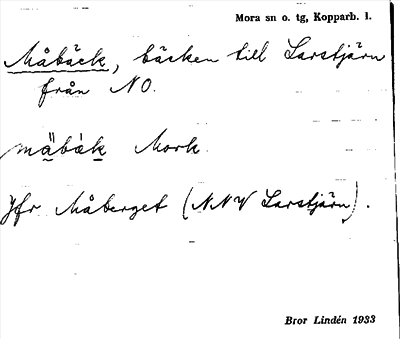 Mora sn o. tg, Kopparb. l.
Måbäck, bäcken till Larstjärn
från NO.
mäbä̀k Mork.
Jfr Måberget (NNV Larstjärn).
Bror Lindén 1933